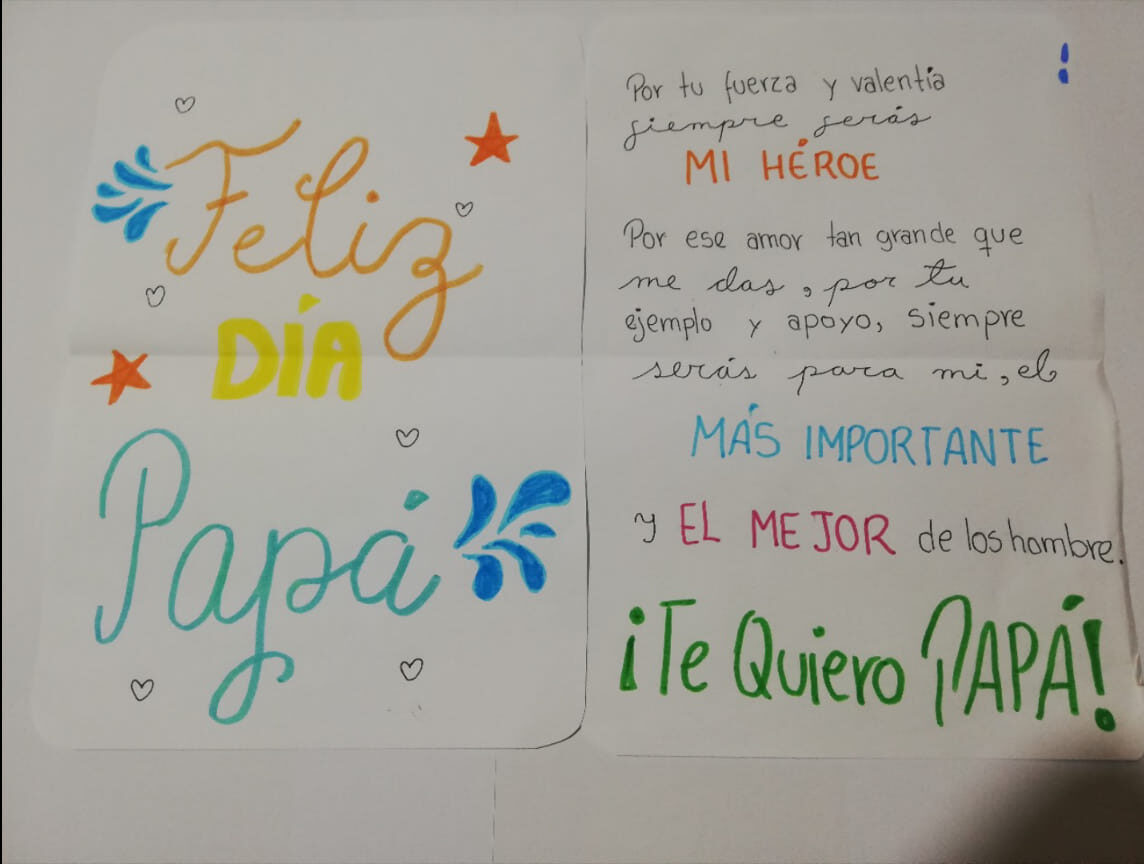 Feliz
DÍA
Papá
!
Por tu fuerza y valentía
siempre serás
MI HÉROE
Por ese amor tan grande que
me das, por tu
ejemplo y apoyo, siempre
serás para mi, el
MÁS IMPORTANTE
y EL MEJOR de los hombre.
¡Te Quiero PAPÁ!